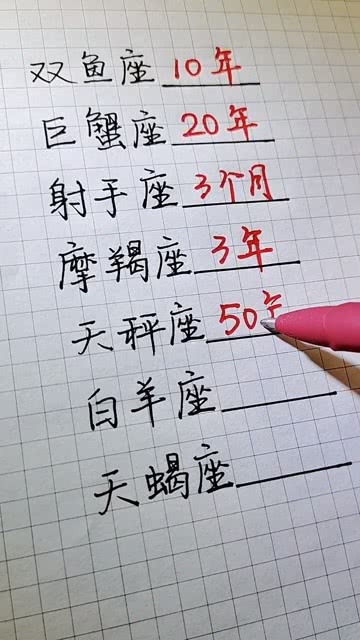 双鱼座 10年
巨蟹座 20年
射手座 3个月
摩羯座 3年
天秤座 50
白羊座
天蝎座